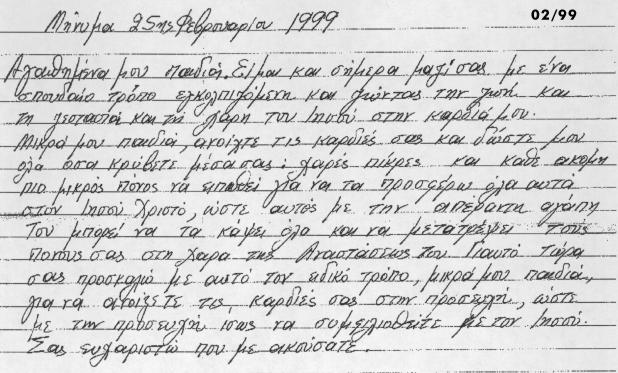 Μήνυμα 25ης Φεβρουαρίου 1999
02/99
Αγαπημένα μου παιδιά. Είμαι και σήμερα μαζί σας με ένα
σπουδαίο τρόπο εγκολπιζόμενη και ζώντας την ζωή και
τη ζεστασιά και τη χάρη του Ιησού στην καρδιά μου.
Μικρά μου παιδιά, ανοίχτε τις καρδιές σας και δώστε μου
όλα όσα κρύβετε μέσα σας: χαρές πίκρες και κάθε ακόμη
πιο μικρός πόνος να ειπωθεί για να τα προσφέρω όλα αυτά
στον Ιησού Χριστό, ώστε αυτός με την απέραντη αγάπη
Του μπορεί να τα κάψει όλα και να μετατρέψει τους
πόνους σας στη χαρά της Αναστάσεως του. Γιαυτό τώρα
σας προσκαλώ με αυτό τον ειδικό τρόπο, μικρά μου παιδιά,
για να ανοίξετε τις καρδιές σας στην προσευχή, ώστε
με την προσευχή ίσως να συμφιλιωθείτε με τον Ιησού.
Σας ευχαριστώ που με ακούσατε.